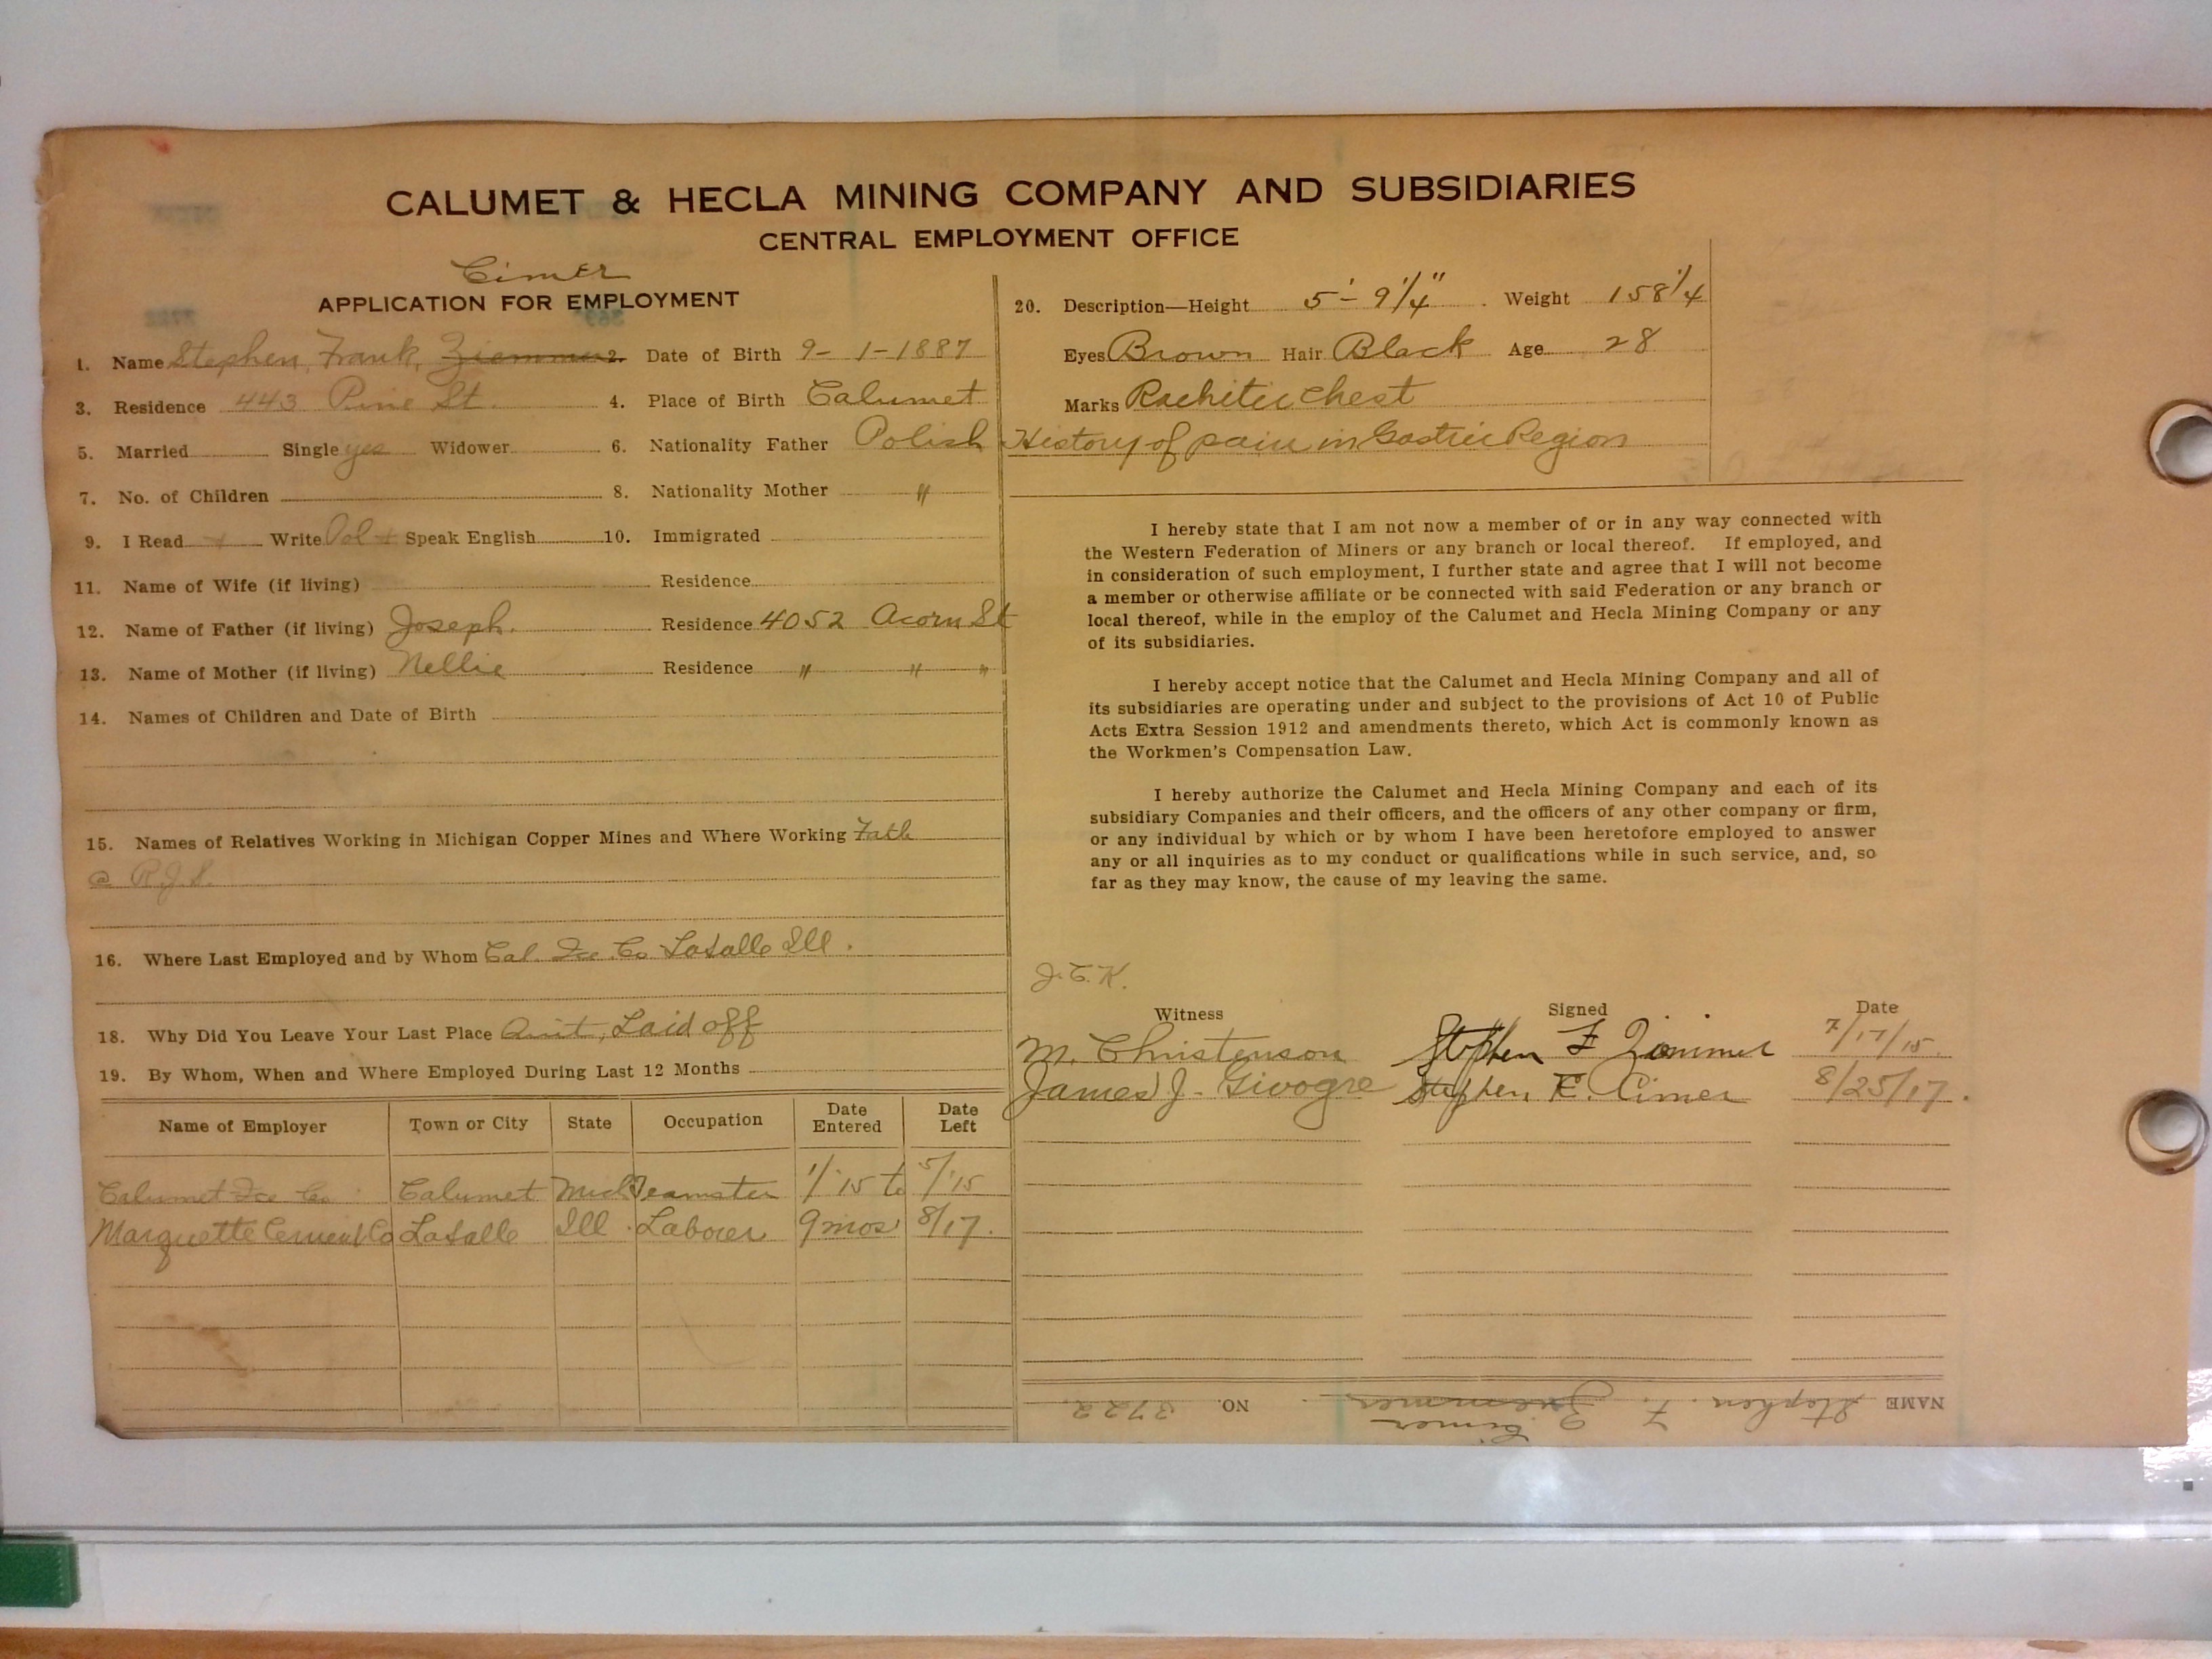 CALUMET & HECLA MINING COMPANY AND SUBSIDIARIES
CENTRAL EMPLOYMENT OFFICE
Cimer
APPLICATION FOR EMPLOYMENT
1. Name Stephen Frank 2. Date of Birth 9-1-1887
3. Residence 443 Pine St. 4. Place of Birth Calumet
5. Married Single yes Widower 6. Nationality Father Polish
7. No. of Children 8. Nationality Mother "
9. I Read + Write Pol + Speak English 10. Immigrated
11. Name of Wife (if living) Residence
12. Name of Father (if living) Joseph. Residence 4052 Acorn St
13. Name of Mother (if living) Nellie Residence " " "
14. Names of Children and Date of Birth
15. Names of Relatives Working in Michigan Copper Mines and Where Working Fath
@ R.J.S.
16. Where Last Employed and by Whom Cal. Ice Co LaSalle Ill.
18. Why Did You Leave Your Last Place Quit, Laid off
19. By Whom, When and Where Employed During Last 12 Months
Name of Employer Town or City State Occupation Date Entered Date Left
Calumet Ice Co. Calumet Mich Teamster 1/'15 to 5/'15
Marquette Cement Co LaSalle Ill. Laborer 9 mos 8/17.
20. Description—Height 5'-9 1/4" Weight 158 1/4
Eyes Brown Hair Black Age 28
Marks Rachitic chest
History of pain in Gastric Region
I hereby state that I am not now a member of or in any way connected with
the Western Federation of Miners or any branch or local thereof. If employed, and
in consideration of such employment, I further state and agree that I will not become
a member or otherwise affiliate or be connected with said Federation or any branch or
local thereof, while in the employ of the Calumet and Hecla Mining Company or any
of its subsidiaries.
I hereby accept notice that the Calumet and Hecla Mining Company and all of
its subsidiaries are operating under and subject to the provisions of Act 10 of Public
Acts Extra Session 1912 and amendments thereto, which Act is commonly known as
the Workmen's Compensation Law.
I hereby authorize the Calumet and Hecla Mining Company and each of its
subsidiary Companies and their officers, and the officers of any other company or firm,
or any individual by which or by whom I have been heretofore employed to answer
any or all inquiries as to my conduct or qualifications while in such service, and, so
far as they may know, the cause of my leaving the same.
J.C.K.
Witness Signed Date
M. Christenson Stephen F Zimmer 7/17/15.
James J. Givogre Stephen F. Cimer 8/25/17.
Cimer
NAME Stephen F. NO. 3722